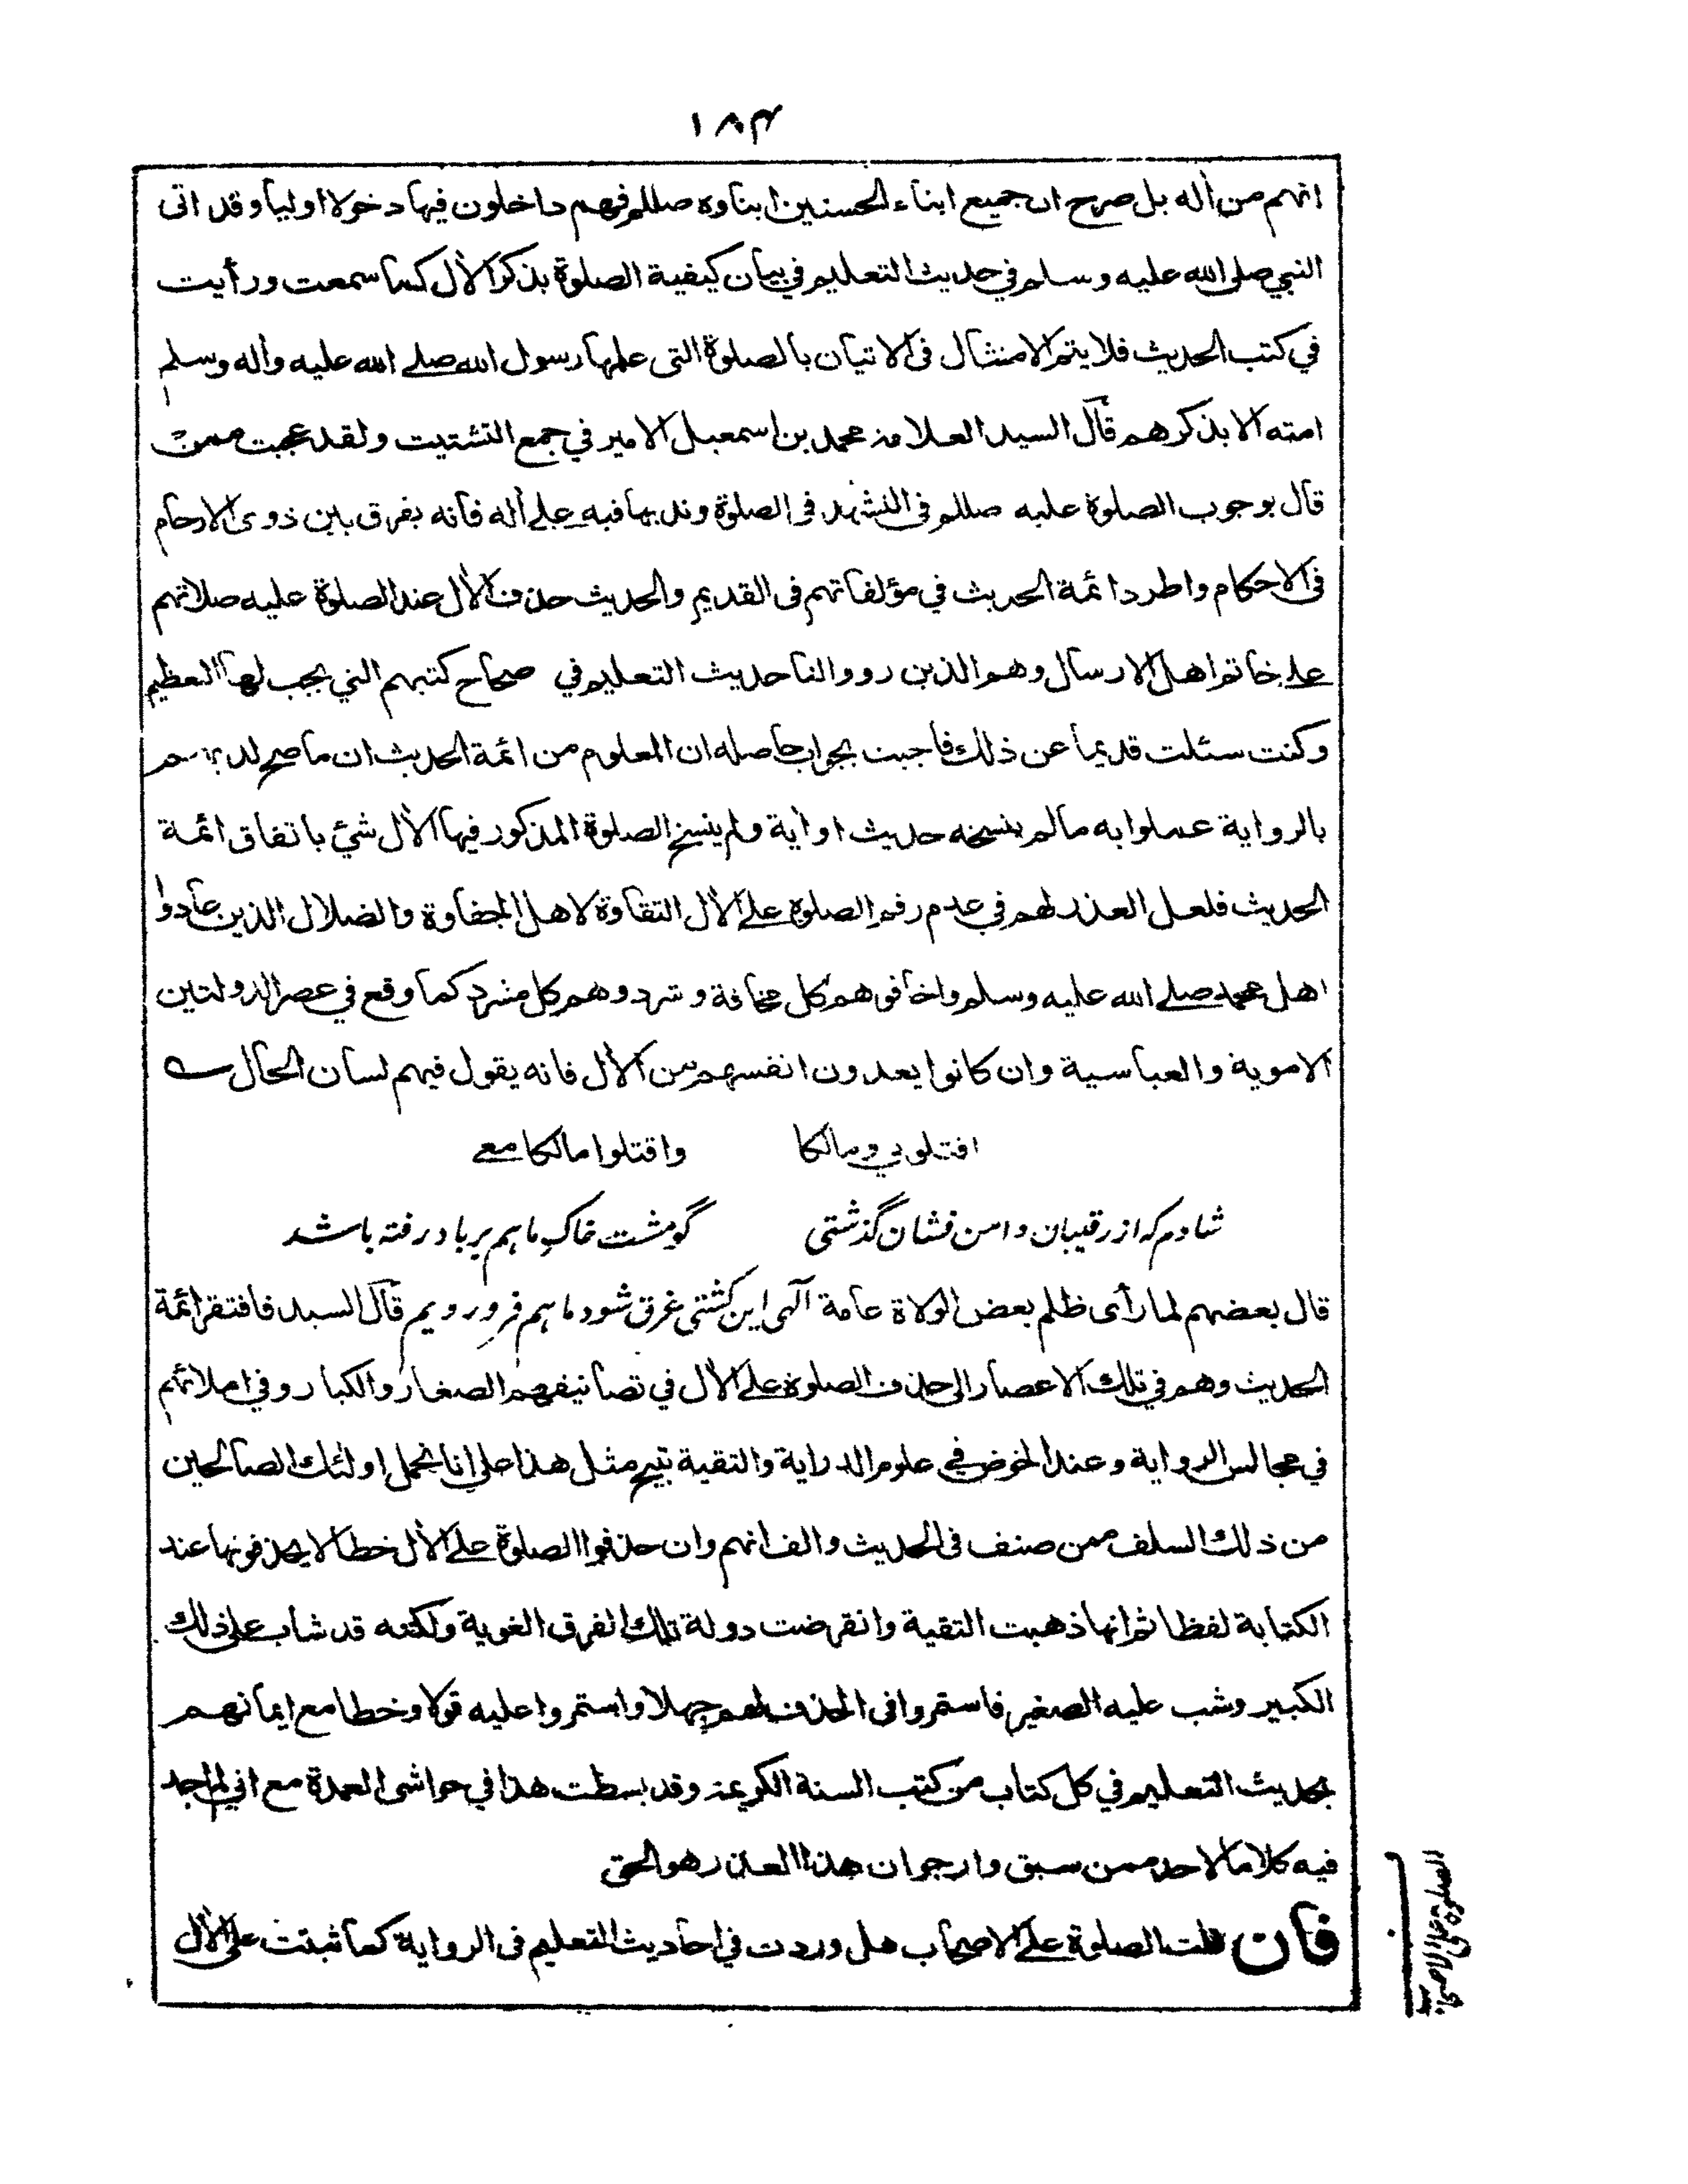 ١٨٤
انهم من اٰله بل صرح ان جميع ابناء الحسنين ابناوه صللم فهم داخلون فيها دخولا اوليا وقد اتى
النبي صلى الله عليه وسلم في حديث التعليم في بيان كيفية الصلوة بذكر الاٰل كما سمعت ورأيت
في كتب الحديث فلا يتم الامتثال فى الاتيان بالصلوة التى علمها رسول الله صلے الله عليه واٰله وسلم
امته الا بذكرهم قال السيد العلامة محمد بن اسمعيل الامير في جمع التشتيت ولقد عجبت ممن
قال بوجوب الصلوة عليه صللم فى التشهد فى الصلوة وندبها فيه علے اٰله فانه يفرق بين ذوى الارحام
فى الاحكام واطرد ائمة الحديث في مؤلفاتهم فى القديم والحديث حذف الاٰل عند الصلوة عليه صلاتهم
علے خاتم اهل الارسال وهم الذين رووا لنا حديث التعليم في صحاح كتبهم التي يجب لها التعظيم
وكنت سئلت قديما عن ذلك فاجبت بجواب حاصله ان المعلوم من ائمة الحديث ان ما صح لديهم
بالرواية عملوا به مالم ينسخه حديث او اٰية ولم ينسخ الصلوة المذكور فيها الاٰل شئ باتفاق ائمة
الحديث فلعل العذر لهم في عدم رقم الصلوة علے الاٰل التقاوة لاهل الجفاوة والضلال الذين عادوا
اهل محمد صلے الله عليه وسلم واخافوهم كل مخافة وشردوهم كل مشرد كما وقع في عصر الدولتين
الاموية والعباسية وان كانوا يعدون انفسهم من الاٰل فانه يقول فيهم لسان الحال ؎
اقتلوني ومالكا واقتلوا مالكا معے
شادم كه از رقيبان دامن فشان گذشتى گو مشت خاک ما هم برباد رفته باشد
قال بعضهم لما رأى ظلم بعض الولاة عامة آلهى اين كشتى غرق شود ما هم فرو رويم قال السيد فافتقر ائمة
الحديث وهم في تلك الاعصار الى حذف الصلوة علے الاٰل في تصانيفهم الصغار والكبار وفي املائهم
في مجالس الرواية وعند الخوض في علوم الدراية والتقية تبيح مثل هذا على انا نحمل اولئك الصالحين
من ذلك السلف ممن صنف فى الحديث والف انهم وان حذفوا الصلوة علے الاٰل خطا لا يحذفونها عند
الكتابة لفظا ثم انها ذهبت التقية وانقرضت دولة تلك الفرق الغوية ولكنه قد شاب على ذلك
الكبير وشب عليه الصغير فاستمروا فى الحذف لهم جهلا واستمروا عليه قولا وخطا مع ايمانهم
بحديث التعليم في كل كتاب من كتب السنة الكريمة وقد بسطت هذا في حواشى العمدة مع اني لم اجد
فيه كلاما لاحد ممن سبق وارجو ان هذا العذر هو الحق
فان قلت الصلوة علے الاصحاب هل وردت في احاديث التعليم فى الرواية كما ثبتت على الاٰل